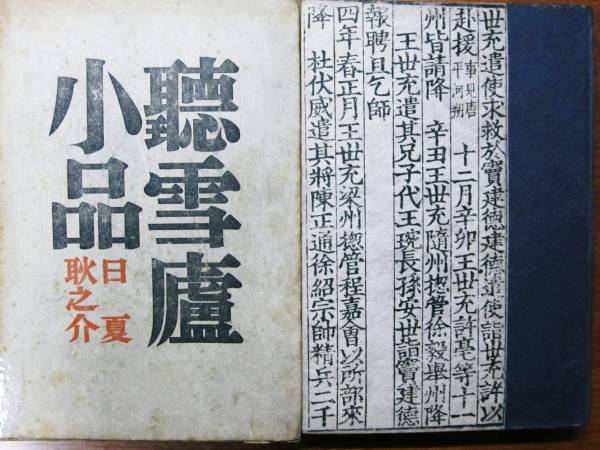 聽雪廬
小品
日夏
耿之介
世充遣使求救於竇建德建德遣使詣世充許以
赴援事見唐平河朔 十二月辛卯王世充許亳等十一
州皆請降 辛丑王世充隨州揔管徐毅舉州降
王世充遣其兄子代王琬長孫安世詣竇建德
報聘且乞師
四年春正月王世充梁州揔管程嘉會以所部來
降 杜伏威遣其將陳正通徐紹宗帥精兵二千